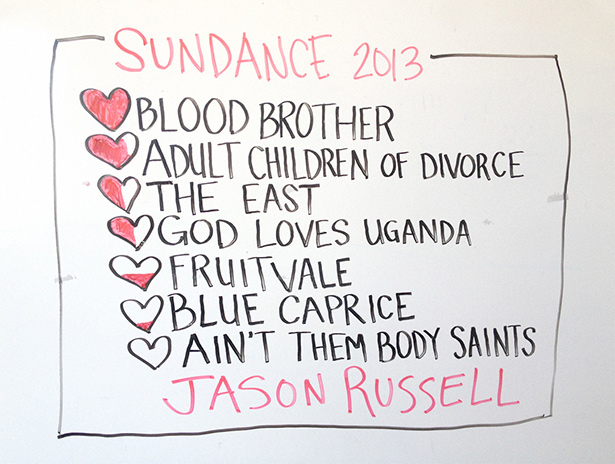 SUNDANCE 2013
BLOOD BROTHER
ADULT CHILDREN OF DIVORCE
THE EAST
GOD LOVES UGANDA
FRUITVALE
BLUE CAPRICE
AIN'T THEM BODY SAINTS
JASON RUSSELL